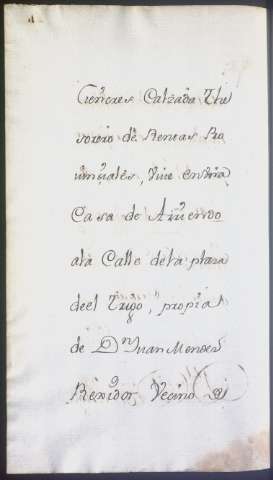 Calzada The
sorero de Rentas Ro
uinçiales, Viue en vna
Casa de Arriendo
a la Calle de la plaza
deel Trigo, propia
de Dn Juan Mendes
Rexidor, Vecino